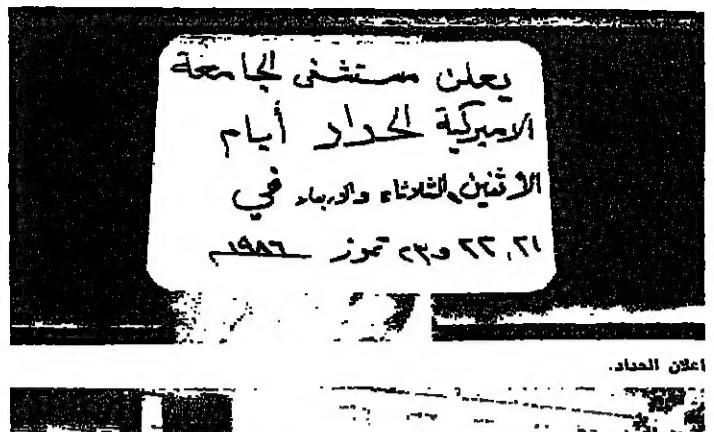 يعلن مستشفى الجامعة
الاميركية الحداد أيام
الاثنين، الثلاثاء والاربعاء في
٢١، ٢٢ و٢٣ تموز ١٩٨٦
اعلان الحداد.